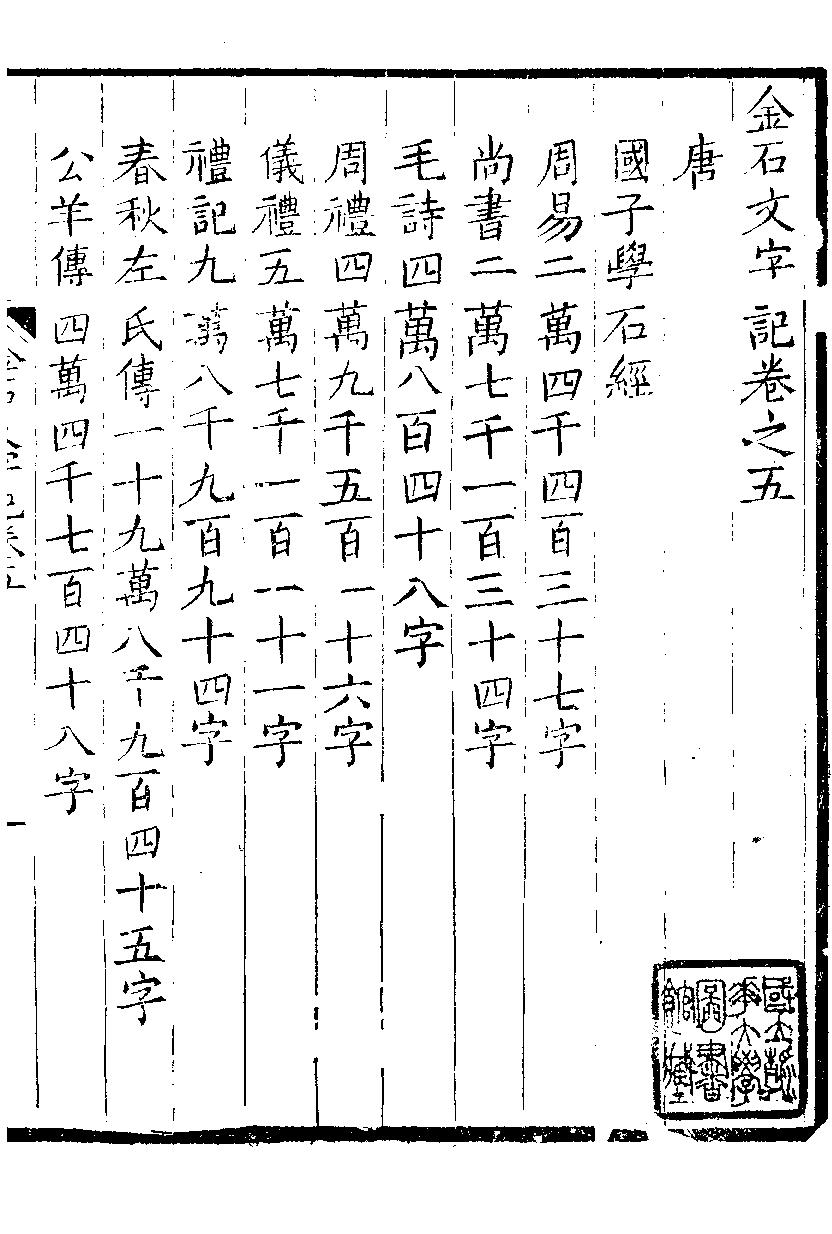 金石文字記卷之五
唐
國子學石經
周易二萬四千四百三十七字
尚書二萬七千一百三十四字
毛詩四萬八百四十八字
周禮四萬九千五百一十六字
儀禮五萬七千一百一十一字
禮記九萬八千九百九十四字
春秋左氏傳一十九萬八千九百四十五字
公羊傳四萬四千七百四十八字
一
國立北平大學圖書館藏